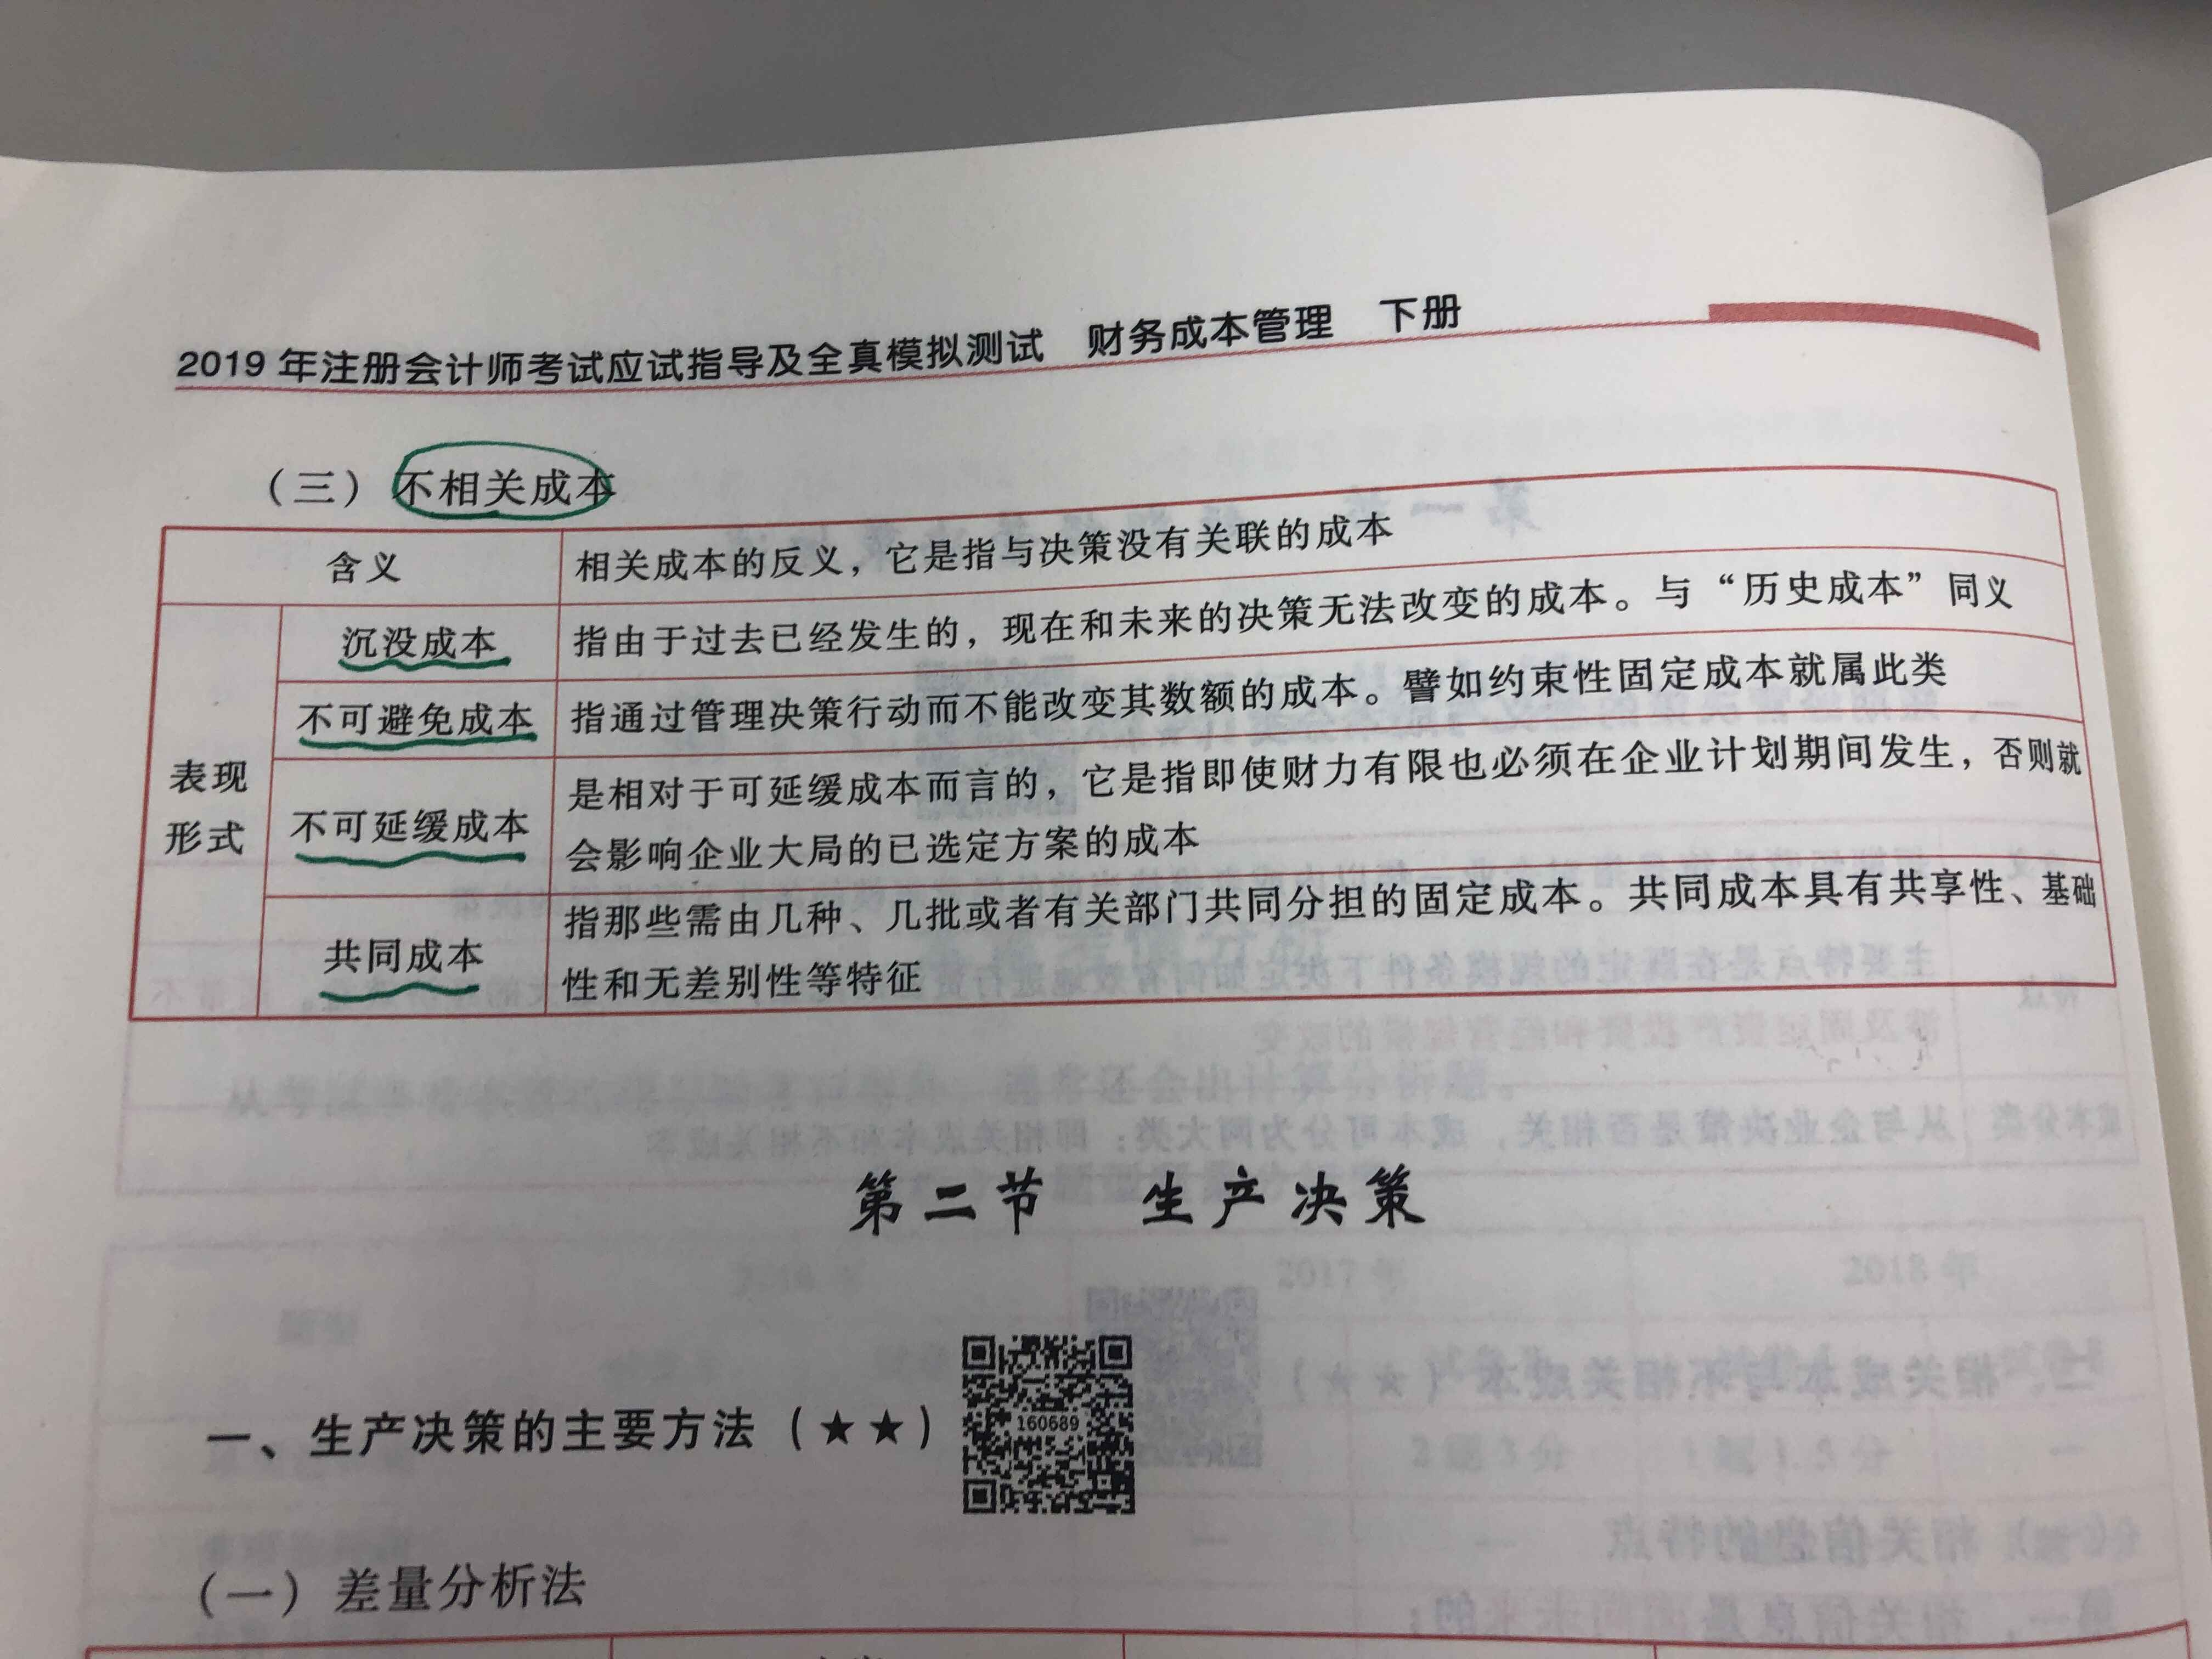 2019 年注册会计师考试应试指导及全真模拟测试 财务成本管理 下册
（三）不相关成本
含义
相关成本的反义，它是指与决策没有关联的成本
表现
形式
沉没成本
指由于过去已经发生的，现在和未来的决策无法改变的成本。与“历史成本”同义
不可避免成本
指通过管理决策行动而不能改变其数额的成本。譬如约束性固定成本就属此类
不可延缓成本
是相对于可延缓成本而言的，它是指即使财力有限也必须在企业计划期间发生，否则就
会影响企业大局的已选定方案的成本
共同成本
指那些需由几种、几批或者有关部门共同分担的固定成本。共同成本具有共享性、基础
性和无差别性等特征
第二节 生产决策
一、生产决策的主要方法（★★）
160689
（一）差量分析法